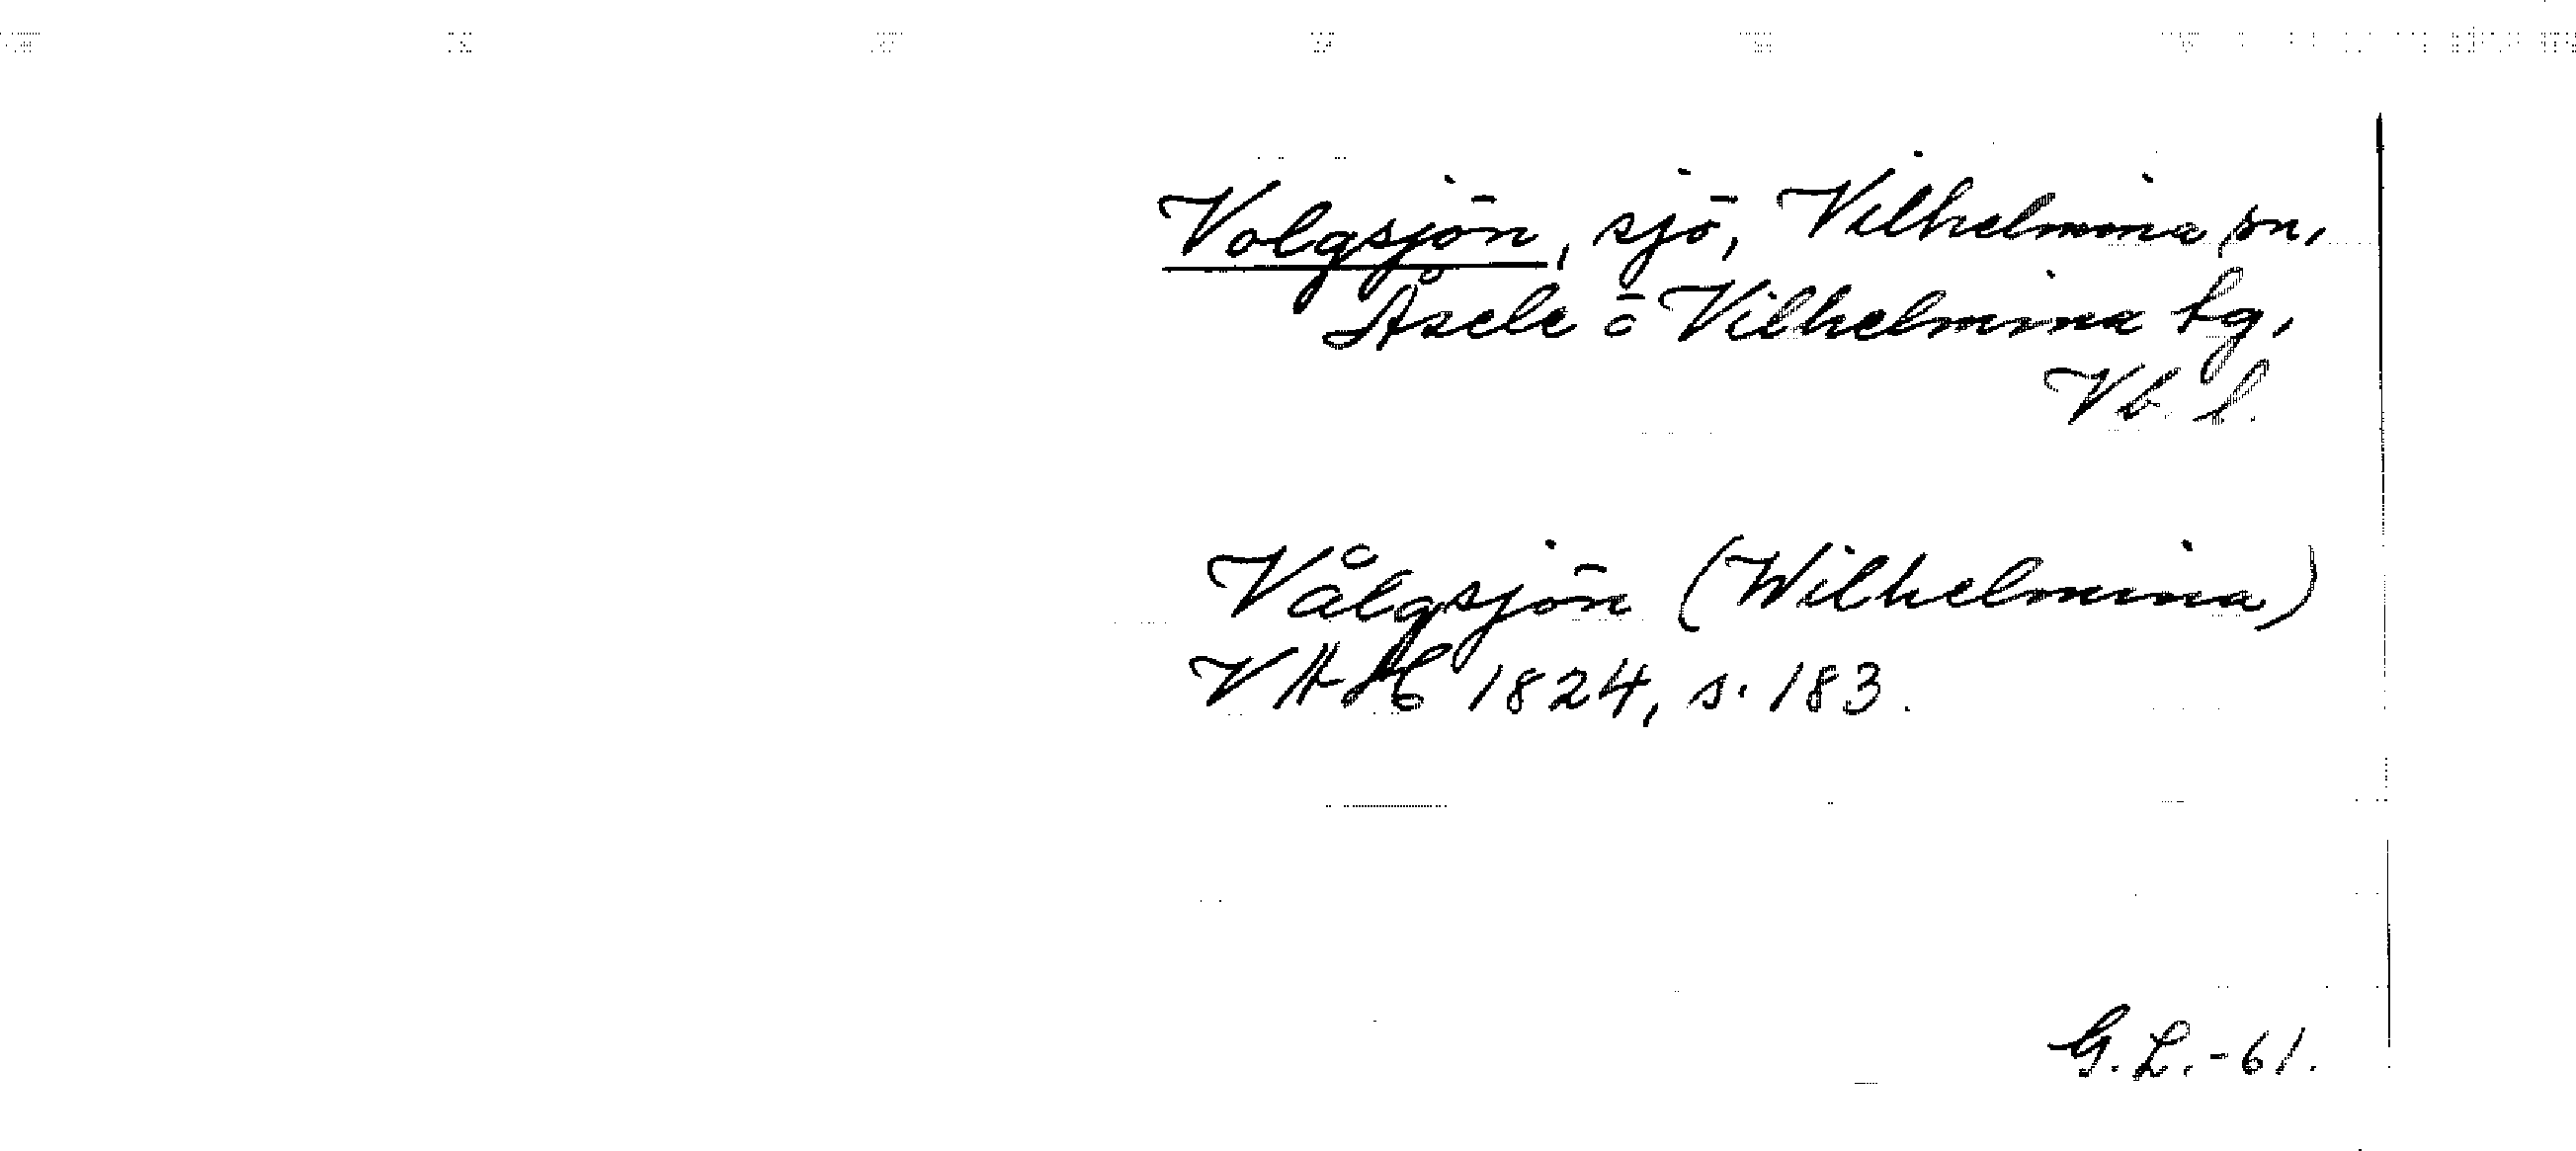 Volgsjön, sjö, Vilhelmina sn,
Åsele o Vilhelmina tg,
Vb. l.
Vålgsjön (Wilhelmina)
VAH 1824, s. 183.
G.L.-61.